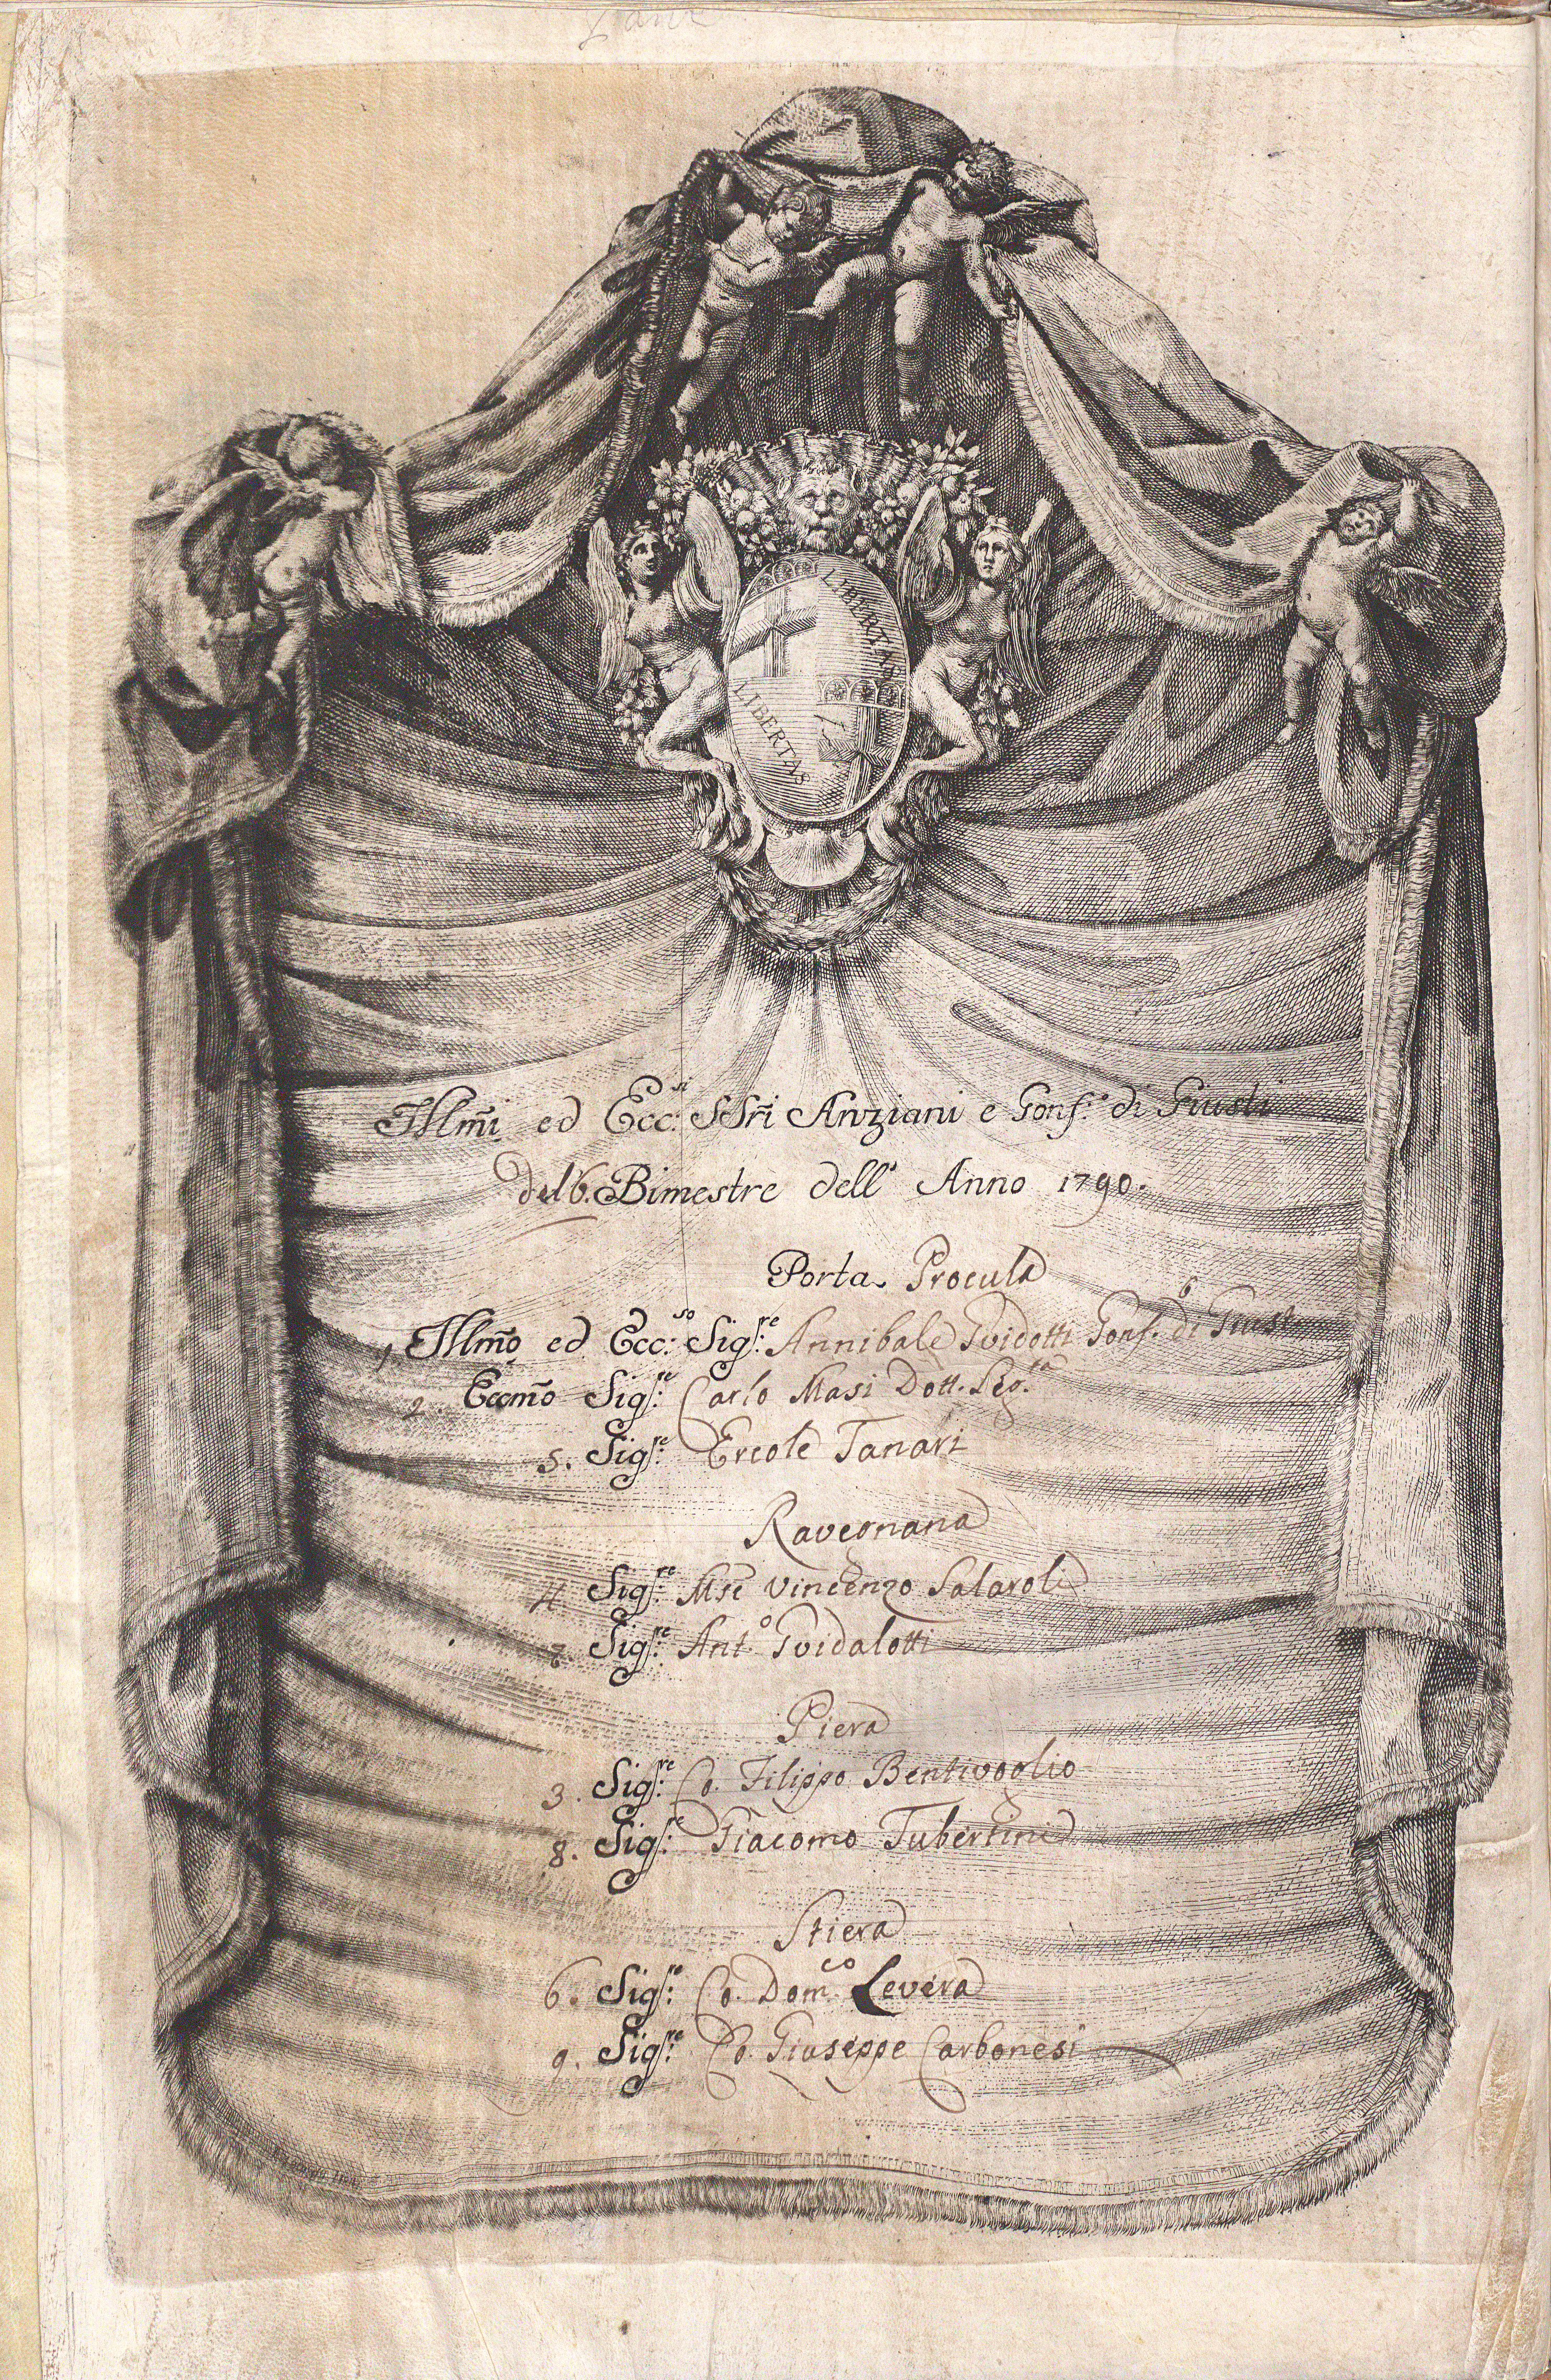 LIBERTAS
LIBERTAS
Illm̃i ed Ecc.si SSri Anziani e Gonf.e di Giusti
del 6. Bimestre dell' Anno 1790.
Porta Procula
1, Illm̃o ed Ecc.so Sig.re Annibale Guidotti Gonf.e di Giust
2. Eccm̃o Sig.re Carlo Masi Dott. Leg.ta
5. Sig.re Ercole Tanari
Ravegnana
4 Sig.re Mse Vincenzo Salaroli
7. Sig.re Ant.o Guidalotti
Piera
3. Sig.re Co. Filippo Bentivoglio
8. Sig.re Giacomo Tubertini
Stiera
6. Sig.re Co. Dom.co Levera
9. Sig.re Co. Giuseppe Carbonesi